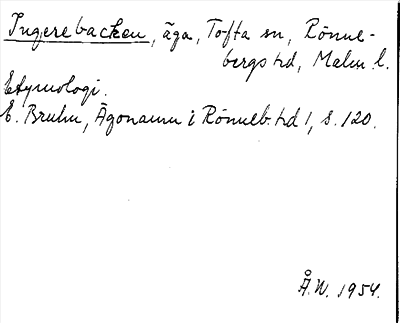 Ingerebacken, äga, Tofta sn, Rönne-
bergs hd, Malm. l.
Etymologi.
E. Bruhn, Ägonamn i Rönneb. hd 1, s. 120.
Å.W. 1954.